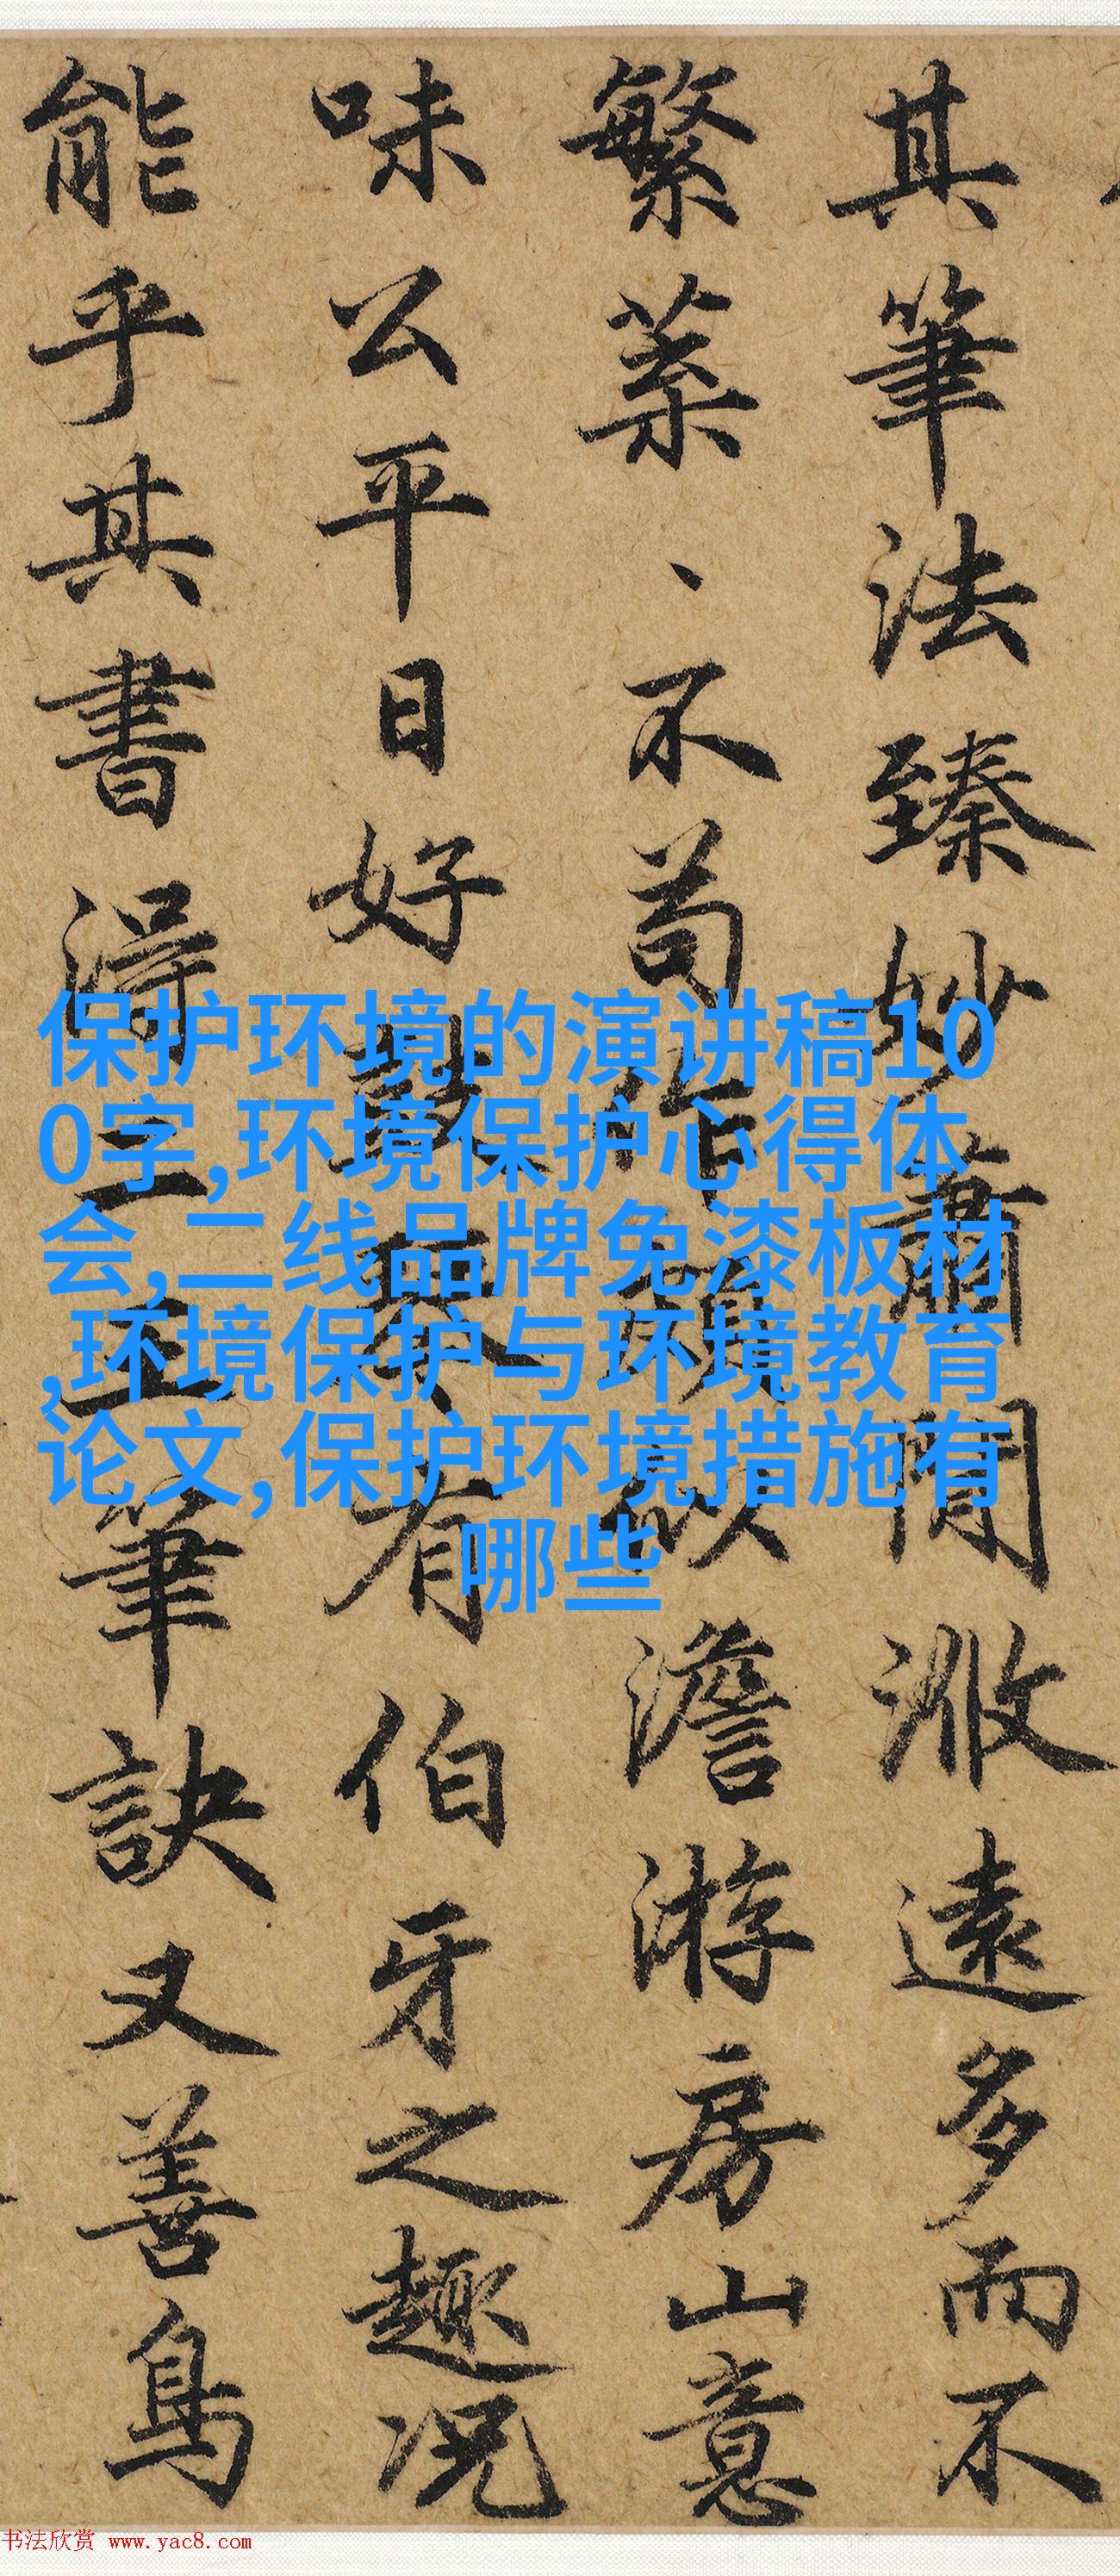 其筆法臻妙蕭閒遠多而不
繁、不苟作以澹游房山意
味公平日好鼓琴有伯牙之趣况
能乎其書得二王筆訣又善鳥
保护环境的演讲稿10
0字,环境保护心得体
会,二线品牌免漆板材
,环境保护与环境教育
论文,保护环境措施有
哪些
书法欣赏 www.yac8.com